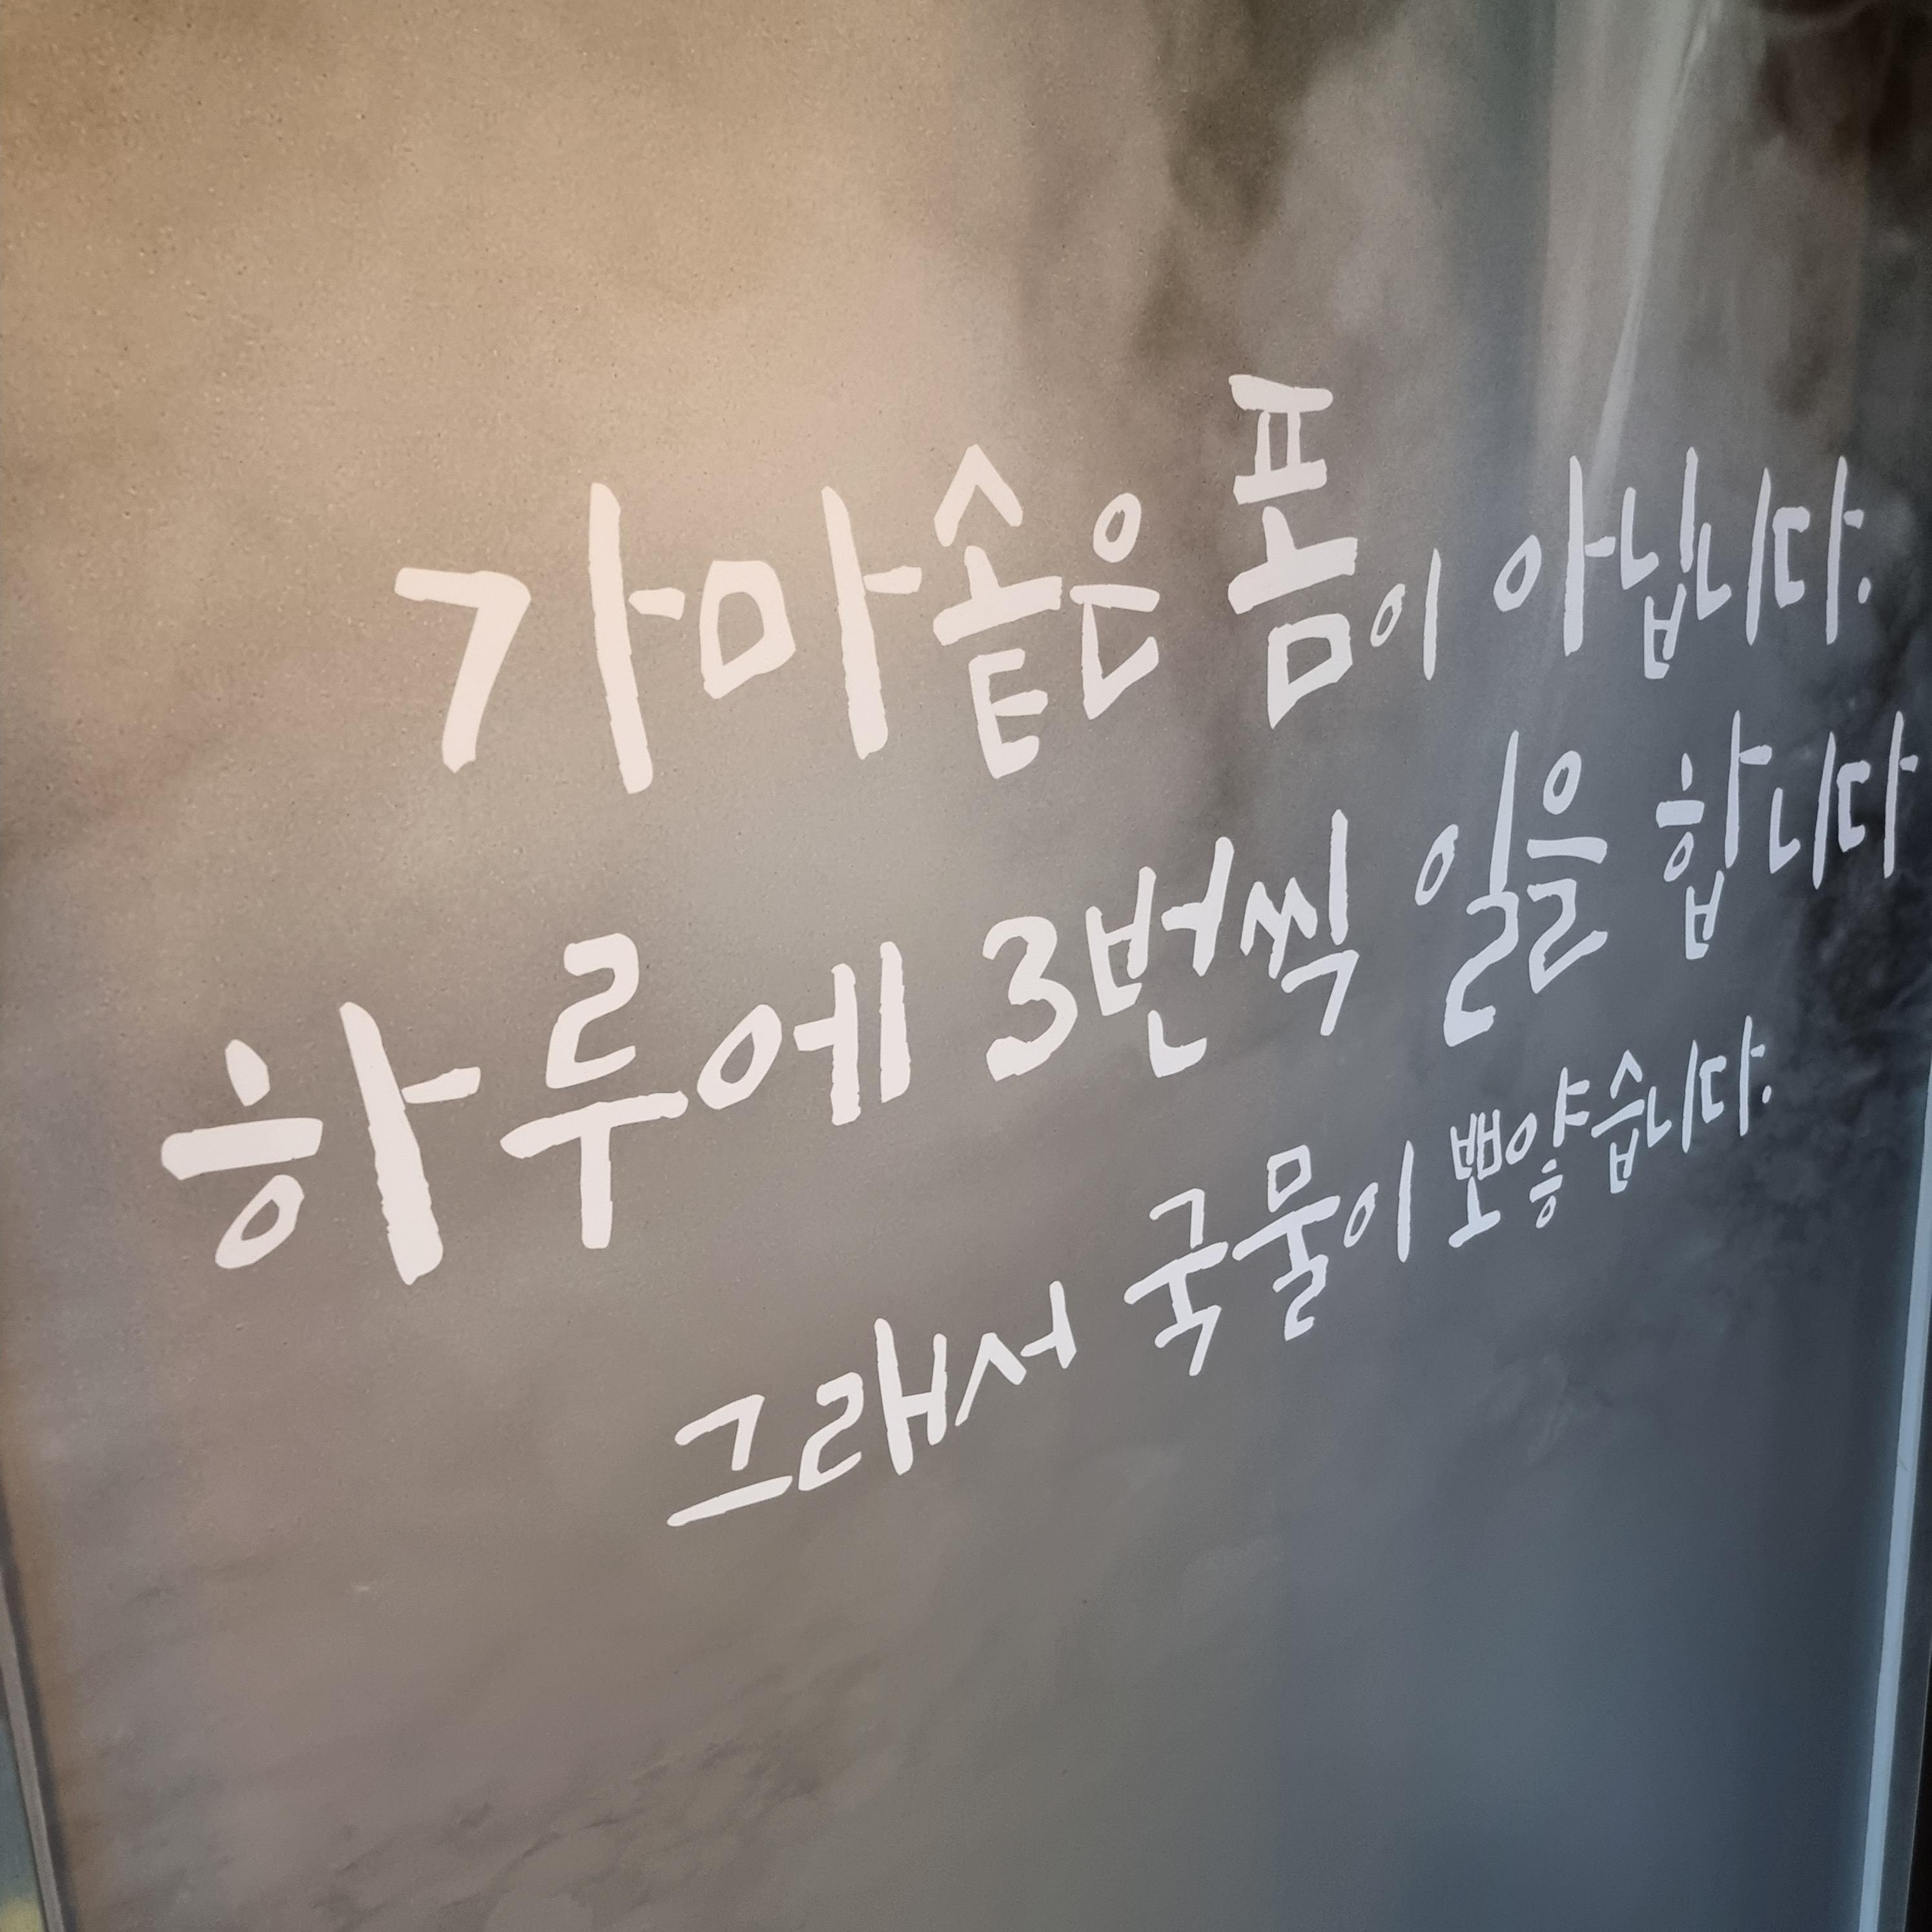 가마솥은 폼이 아닙니다.
하루에 3번씩 일을 합니다
그래서 국물이 뽀얗습니다.